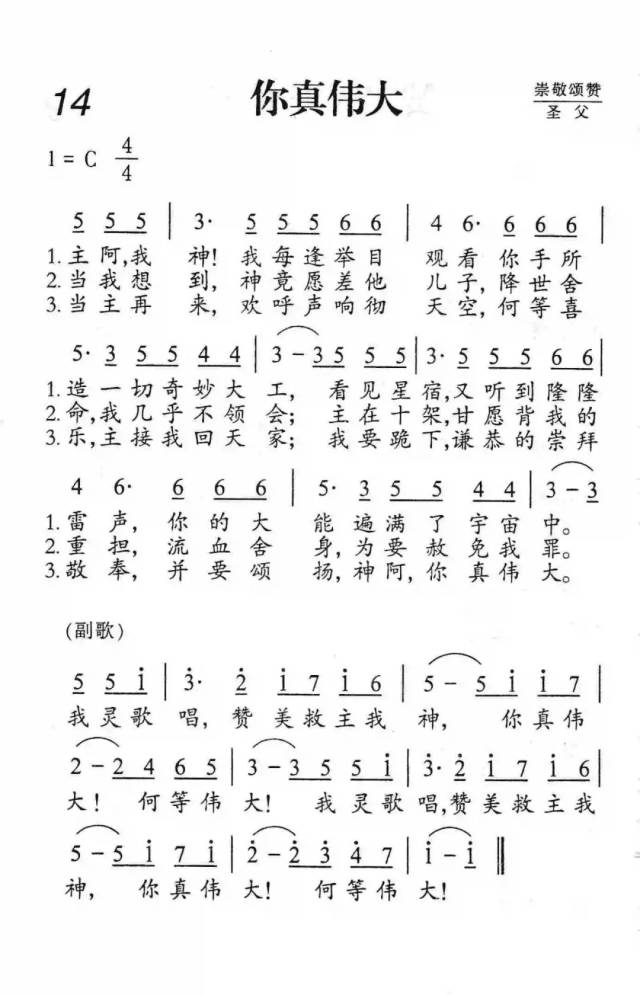 14
你真伟大
崇敬颂赞
圣父
1=C 4/4
5 5 5 | 3· 5 5 5 6 6 | 4 6· 6 6 6
1.主阿,我 神! 我每逢举目 观看你手所
2.当我想 到, 神竟愿差他 儿子,降世舍
3.当主再 来, 欢呼声响彻 天空,何等喜
5· 3 5 5 4 4 | 3-3 5 5 5 | 3· 5 5 5 6 6
1.造一切奇妙大工, 看见星宿,又听到隆隆
2.命,我几乎不领会; 主在十架,甘愿背我的
3.乐,主接我回天家; 我要跪下,谦恭的崇拜
4 6· 6 6 6 | 5· 3 5 5 4 4 | 3-3
1.雷声, 你的大 能遍满了宇宙中。
2.重担, 流血舍 身,为要赦免我罪。
3.敬奉, 并要颂 扬,神阿,你真伟大。
(副歌)
5 5 i | 3̇· 2̇ i 7 i 6 | 5-5 i i 7
我灵歌 唱, 赞美救主我 神, 你真伟
2-2 4 6 5 | 3-3 5 5 i | 3̇· 2̇ i 7 i 6
大! 何等伟 大! 我灵歌 唱,赞美救主我
5-5 i 7 i | 2̇-2̇ 3̇ 4̇ 7 | i-i ‖
神, 你真伟 大! 何等伟 大!